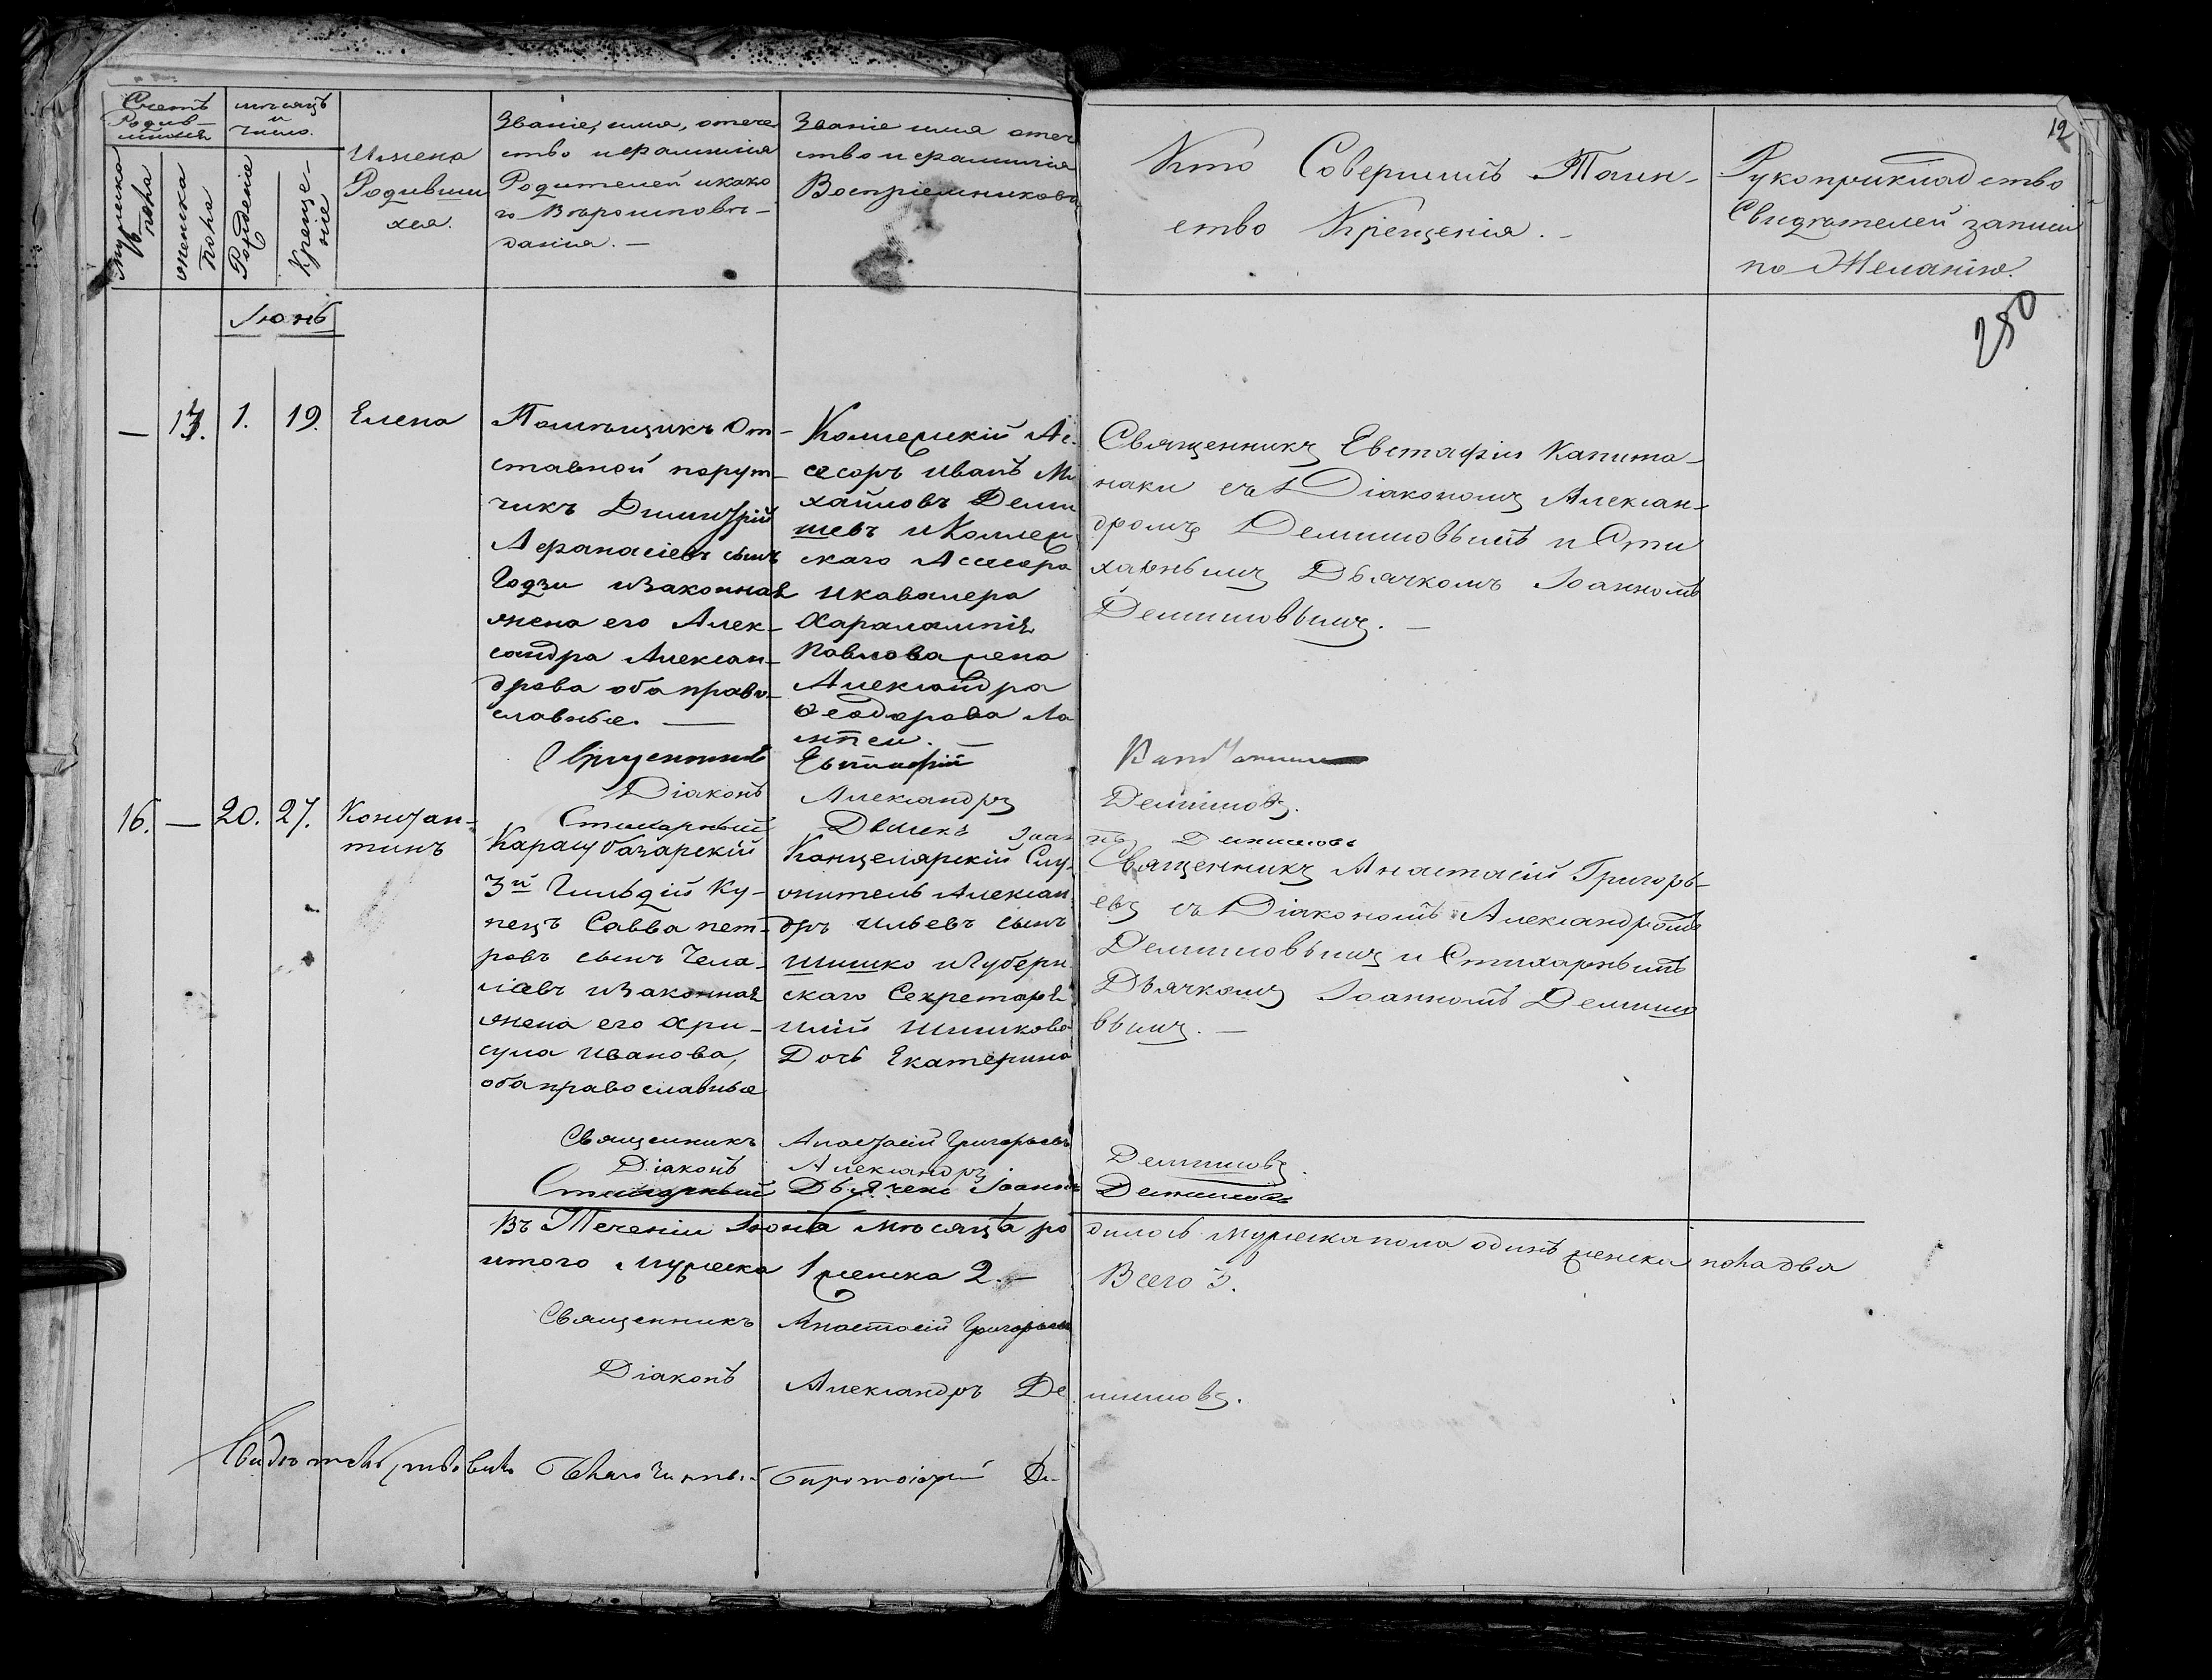 12
Счетъ
Родив-
шихся
мѣсяцъ
и
число.
мужеска
пола
женска
пола
Рожденіе
Креще-
ніе
Имена
Родивши
хся.
Званіе, имя, отече
ство и фамилія
Родителей и како
го Вѣроисповѣ-
данія. —
Званіе имя отече
ство и фамилія
Воспріемниковъ
Кто Совершилъ Таин-
ство Крещенія. -
Рукоприкладство
Свидѣтелей записи
по Желанію.
250
Іюнь
— 13. 1. 19. Елена
Помѣщикъ От-
ставной порут-
чикъ Димитрій
Афанасіевъ сынъ
Годзи и Законная
жена его Алек-
сандра Алексан-
дрова оба право-
славные. —
Коллежскій Ас-
сесоръ Иванъ Ми
хайловъ Деми
шевъ и Коллеж
скаго Ассесора
и кавалера
Харалампія
Павлова жена
Александра
Ѳеодорова Ла
Священникъ Евстафій Капита-
наки съ Діакономъ Алексан-
дромъ Демишовымъ и Сти
харнымъ Дьячкомъ Іоанномъ
Демишовымъ. —
Священникъ Евстафій
Діаконъ Александръ Демишовъ.
Стихарный Дьячекъ Іоан нъ Демишовъ
16. — 20. 27. Констан-
тинъ
Карасубазарскій
3й Гильдіи Ку-
пецъ Савва пет-
ровъ сынъ Чела-
ліовъ и Законная
жена его Хри-
сула Иванова,
оба православные
Канцелярскій Слу-
житель Алексан
дръ Ильевъ сынъ
Шишко и Губерн
скаго Секретаря
Иліи Шишкова
Дочь Екатерина
Священникъ Анастасій Григорь-
евъ съ Діакономъ Александромъ
Демишовымъ и Стихарнымъ
Дьячкомъ Іоанномъ Демишо
вымъ. —
Священникъ Анастасій Григорьевъ
Діаконъ Александръ Демишовъ.
Стихарный Дьячекъ Іоаннъ Демишовъ
Въ Теченіи Іюня мѣсяца ро дилось мужеска пола одинъ женска пола два
итого мужеска 1 женска 2. — Всего 3.
Священникъ Анастасій Григорьевъ
Діаконъ Александръ Де мишовъ.
Свидѣтельствовалъ Благочинный Протоіерей Д-